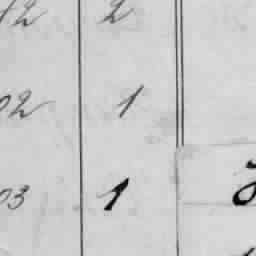 12 2
02 1
03 1